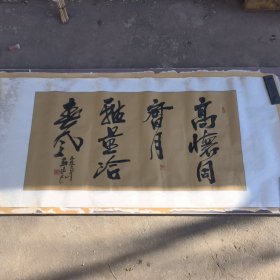 高懷同
霽月
雅量洽
春风